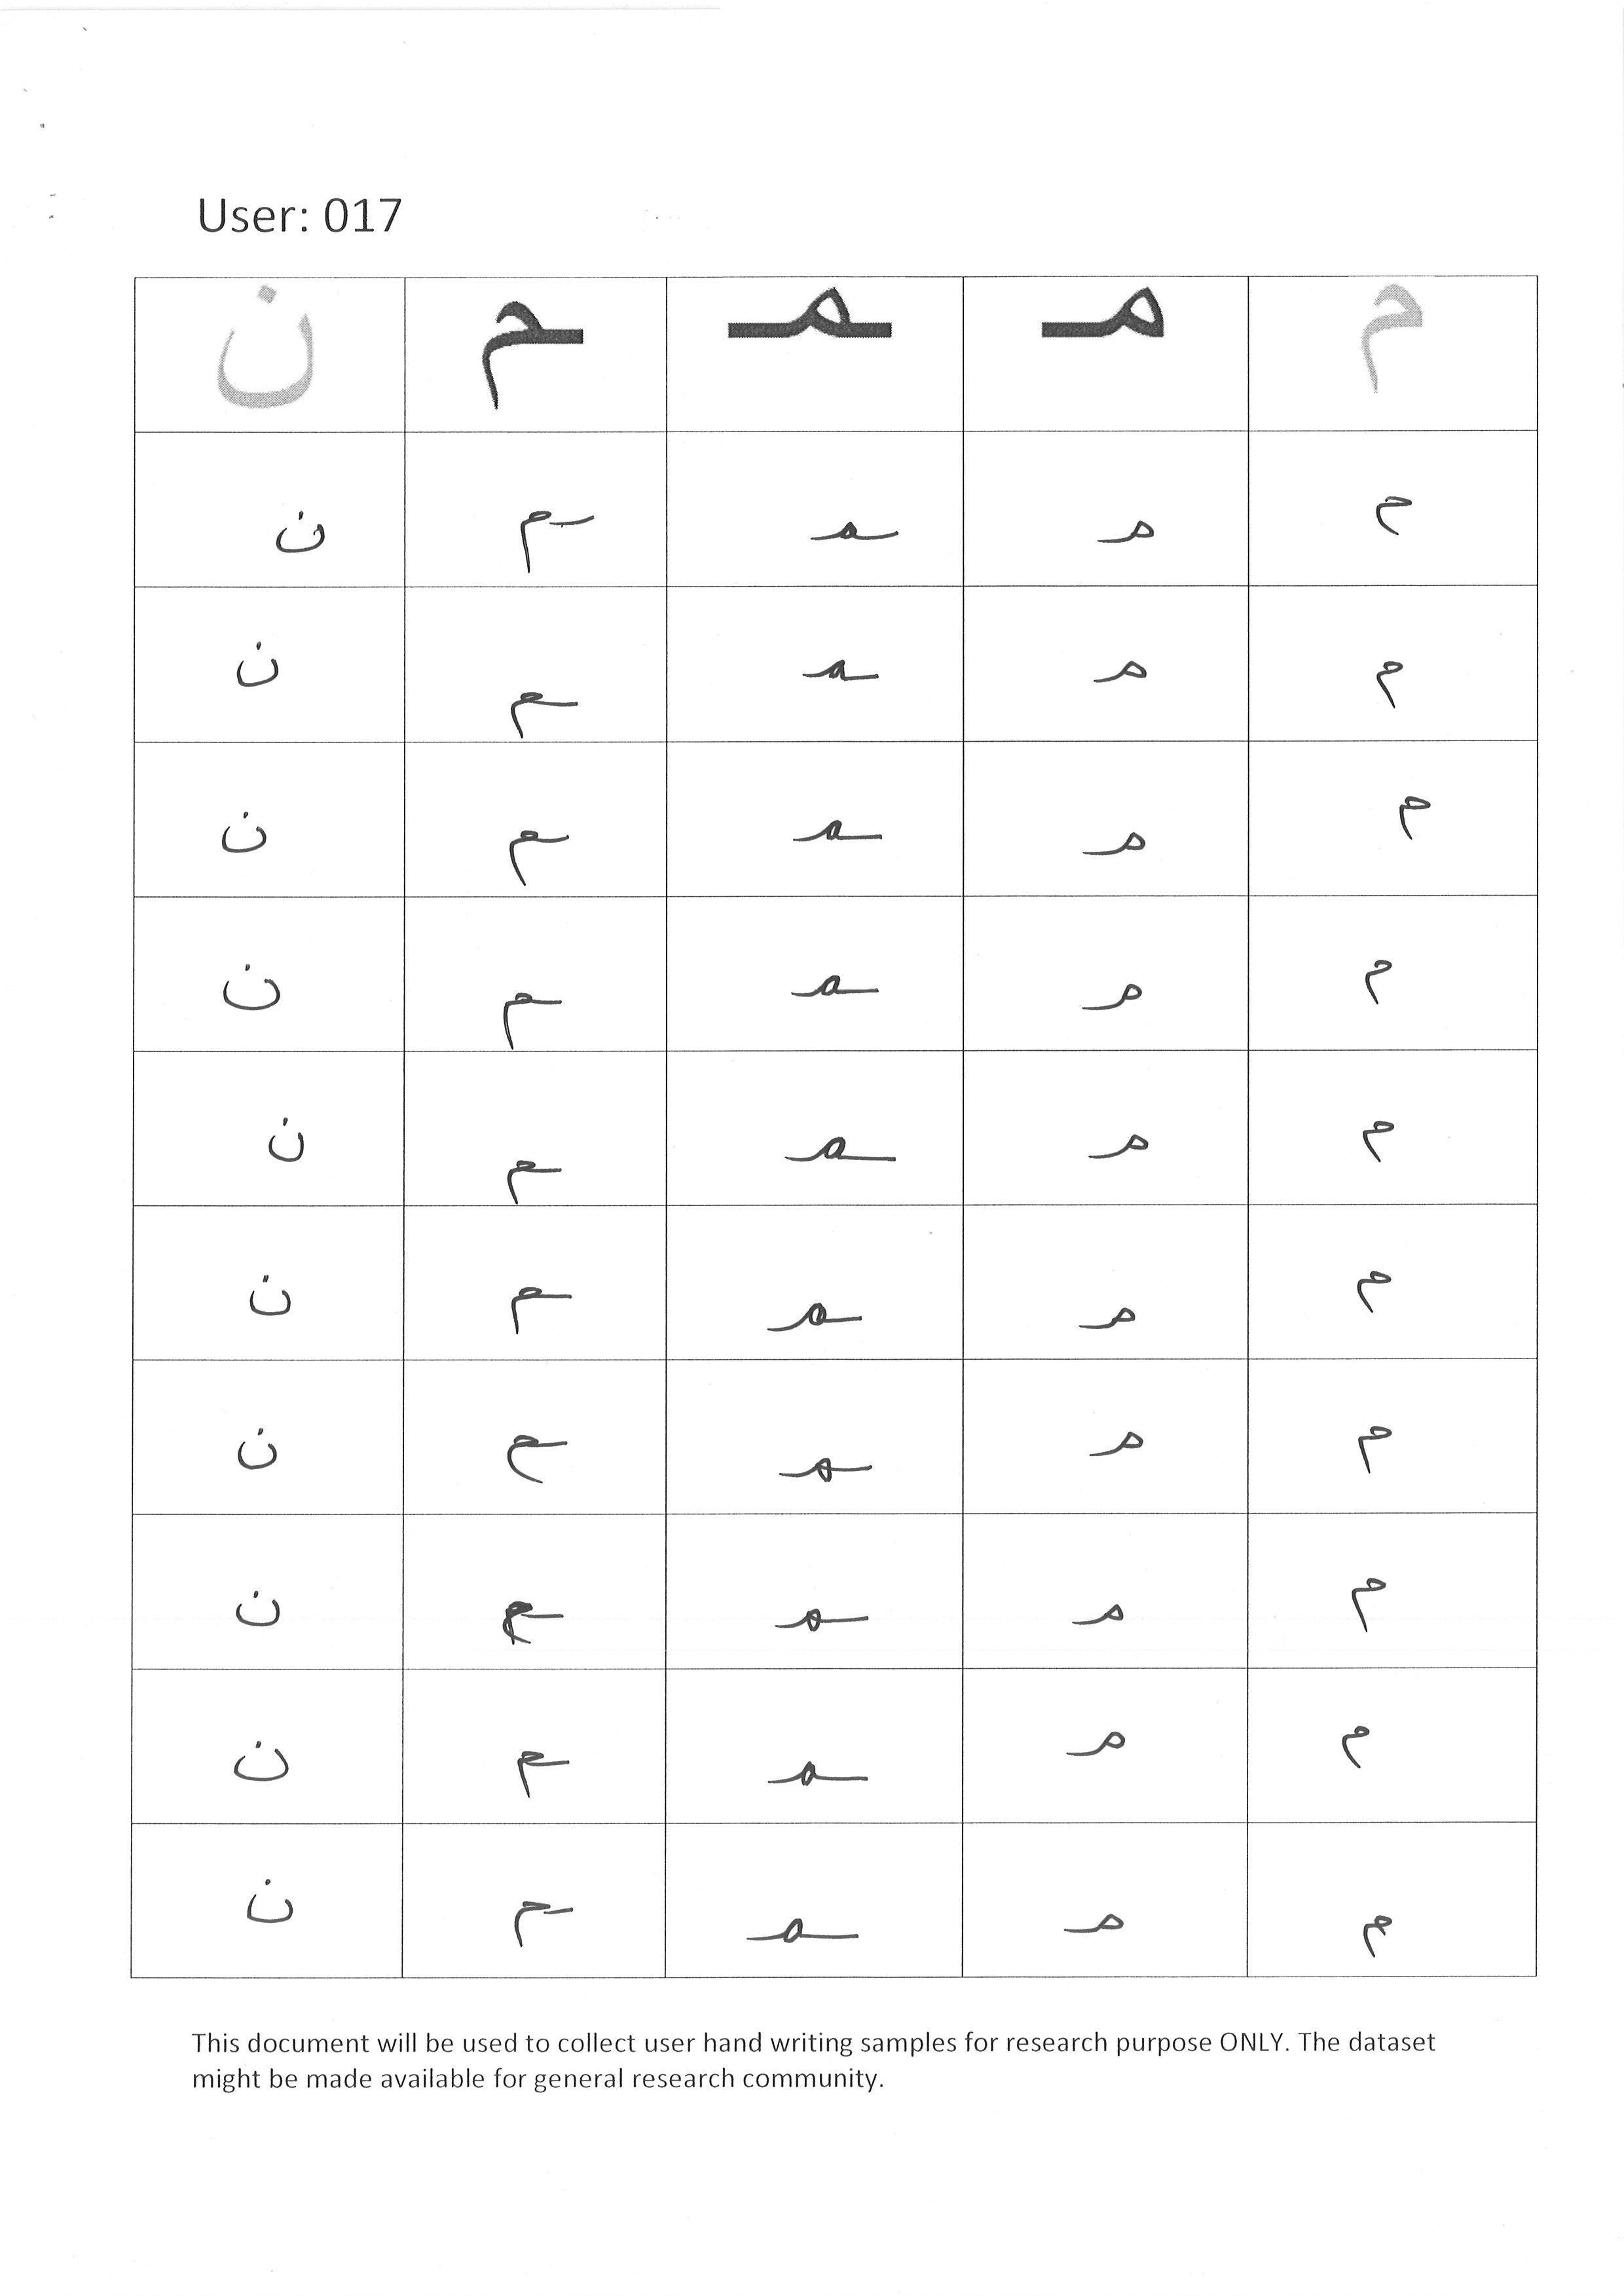 User: 017
م مـ ـمـ ـم ن
م مـ ـمـ ـم ن
م مـ ـمـ ـم ن
م مـ ـمـ ـم ن
م مـ ـمـ ـم ن
م مـ ـمـ ـم ن
م مـ ـمـ ـم ن
م مـ ـمـ ـم ن
م مـ ـمـ ـم ن
م مـ ـمـ ـم ن
م مـ ـمـ ـم ن
This document will be used to collect user hand writing samples for research purpose ONLY. The dataset
might be made available for general research community.